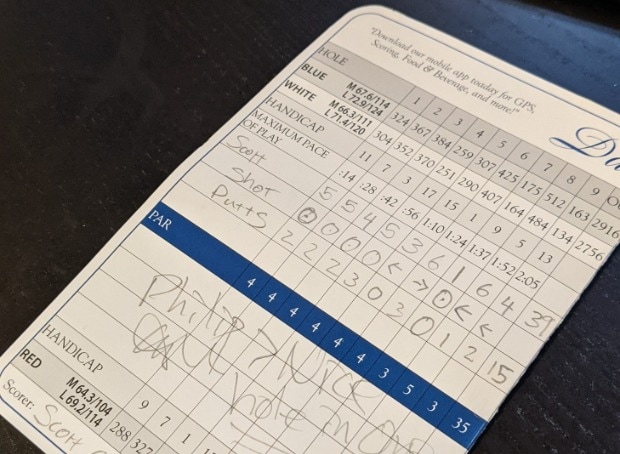 "Download our mobile app toaday for GPS,
Scoring, Food & Beverage, and more!"
HOLE 1 2 3 4 5 6 7 8 9
BLUE M 67.6/114 L 72.9/124 324 367 384 259 307 425 175 512 163 2916
WHITE M 66.3/111 L 71.4/120 304 352 370 251 290 407 164 484 134 2756
HANDICAP 11 7 3 17 15 1 9 5 13
MAXIMUM PACE OF PLAY :14 :28 :42 :56 1:10 1:24 1:37 1:52 2:05
Scott 5 5 4 5 3 6 1 6 4 39
Shot O O O O < → O < <
Putts 2 2 2 3 0 3 0 1 2 15
PAR 4 4 4 4 4 4 3 5 3 35
Philip > Nice
hole in one
HANDICAP 9 7 1
RED M 64.3/104 L 69.2/114 288 327
Scorer: Scott